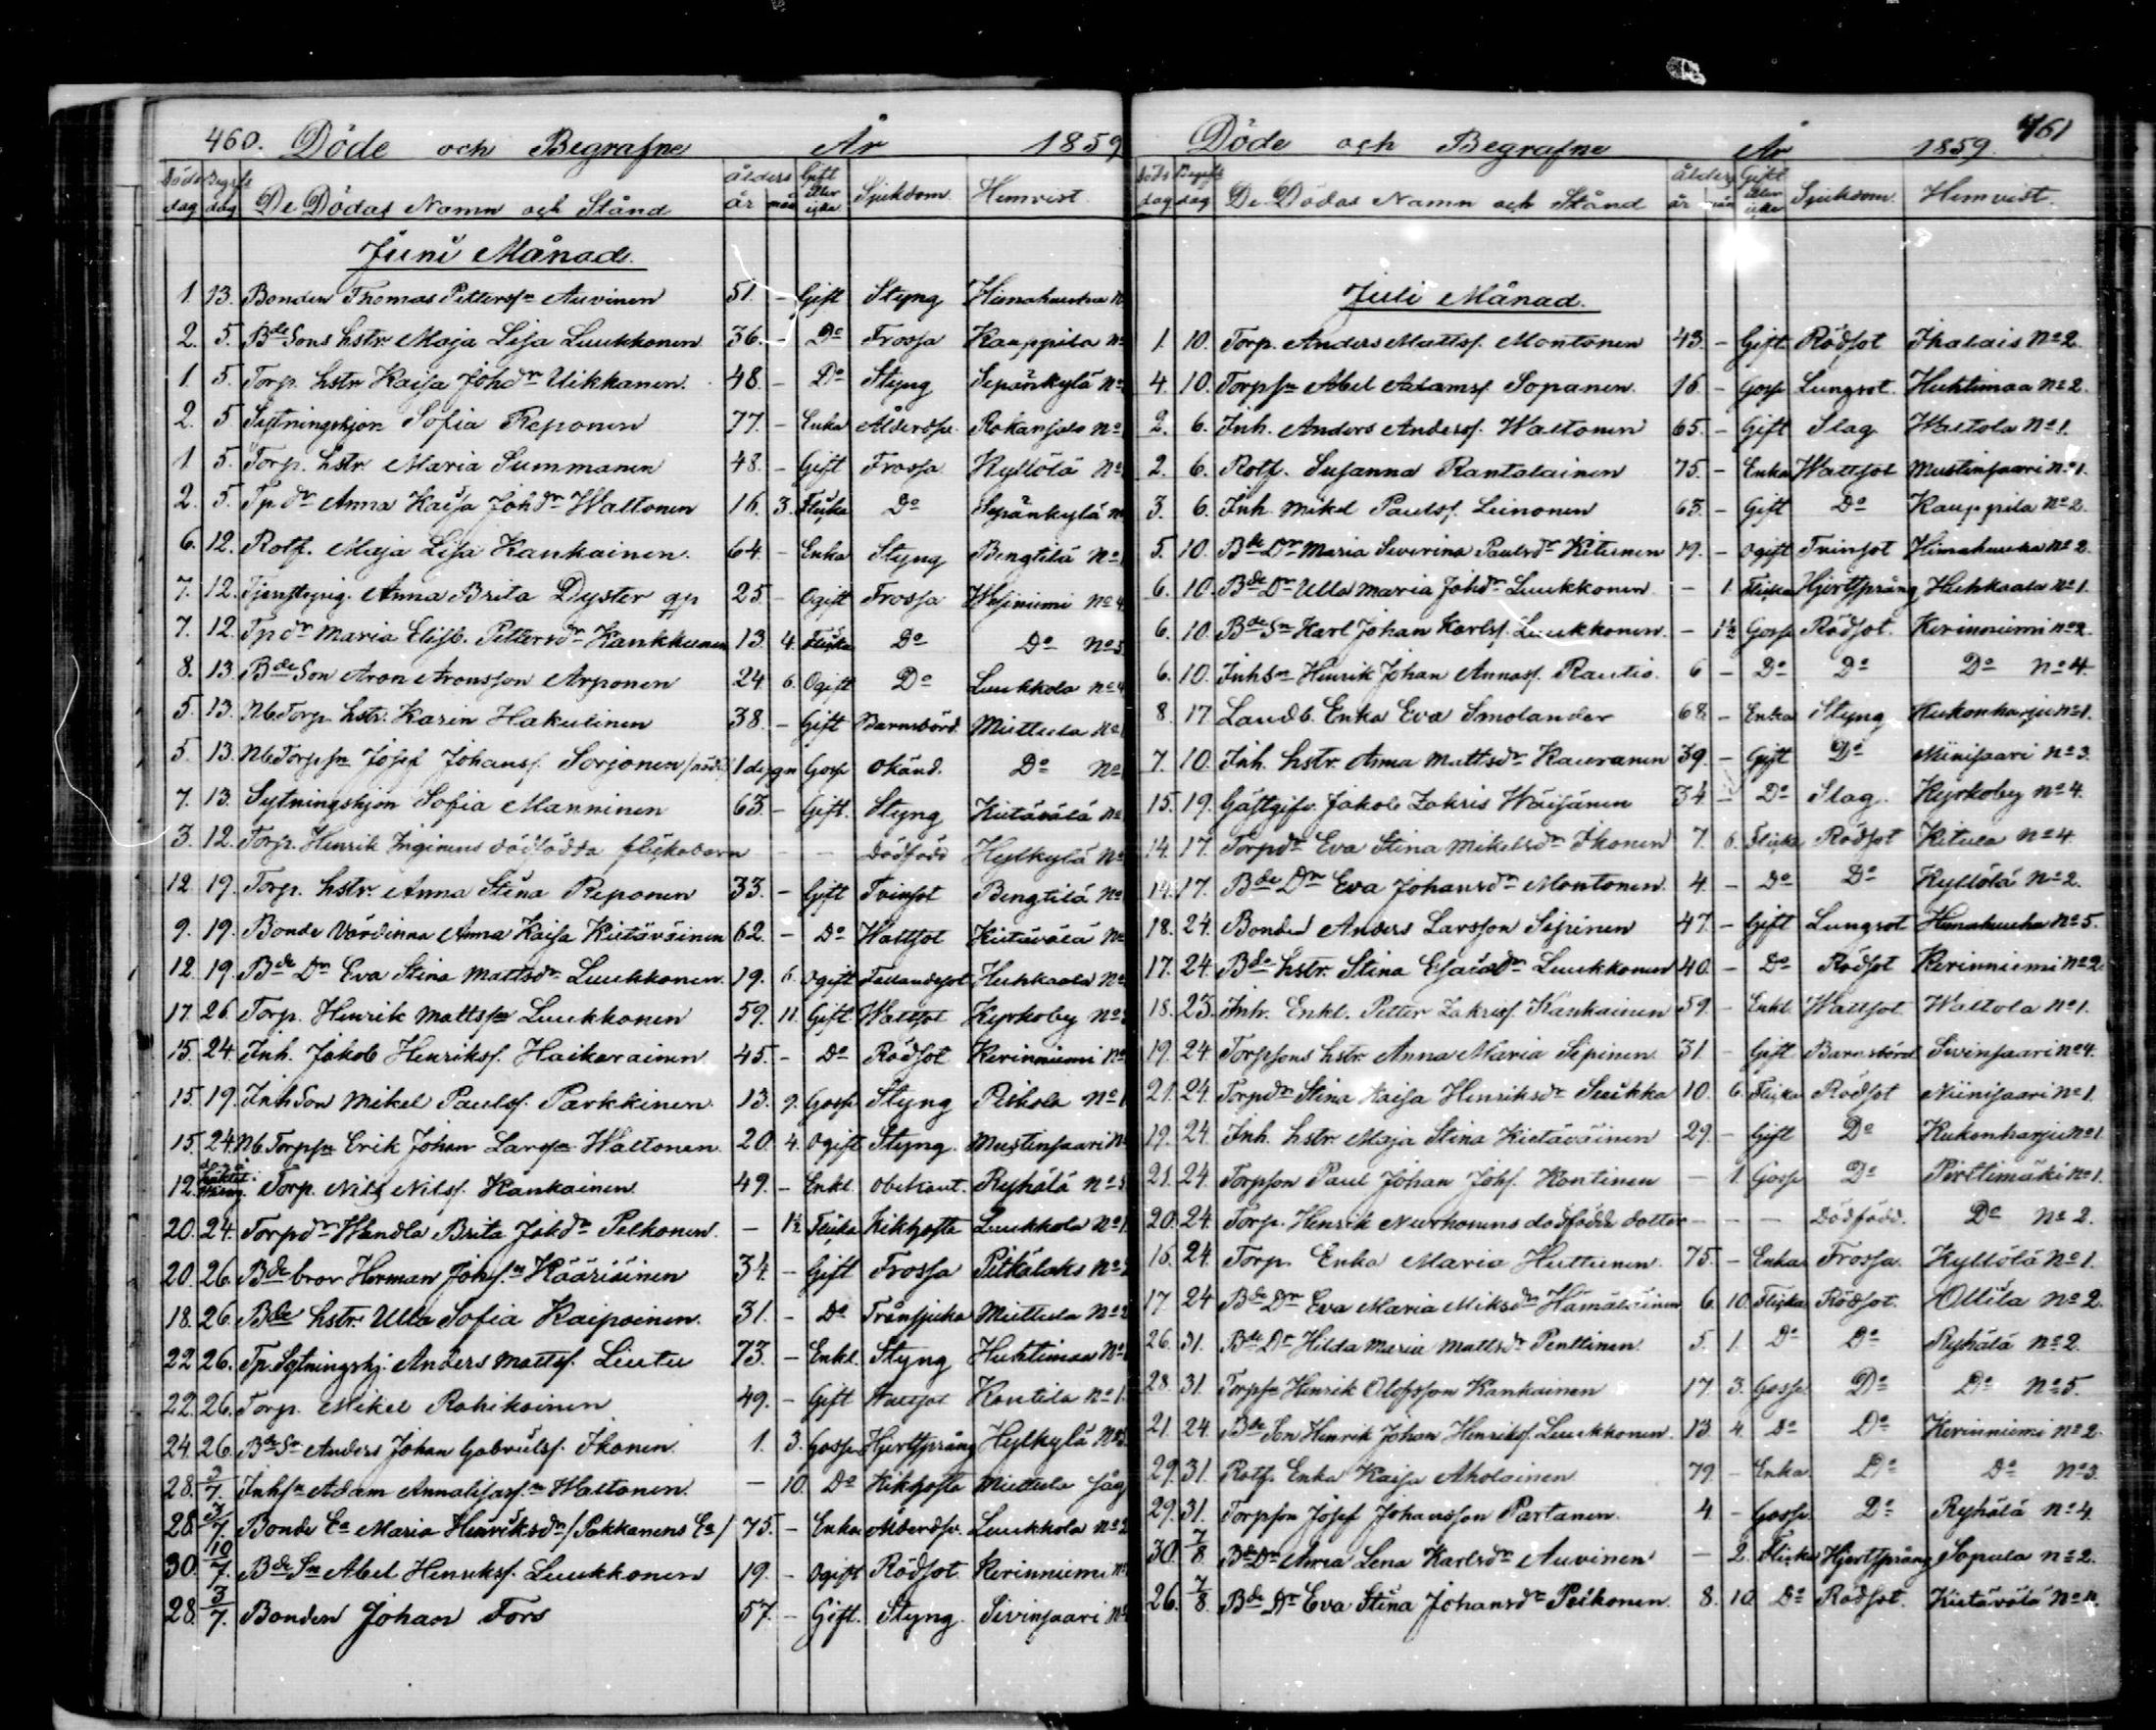 460. Döde och Begrafne År 1859
Döds dag Begrfs dag De Dödas Namn och Stånd ålders år mån Gift eller icke Sjukdom Hemvist
Juni Månad.
1. 13. Bonden Thomas Petterss. Auvinen 51. - Gift Styng
2. 5. Bde Sons hstr. Maja Lisa Luukkonen 36. - Do Frossa Kauppila No
1. 5. Torp. hstr Kaisa Johdr Uikkanen. 48. - Do Styng Sepänkylä No
2. 5 Sytningshjon Sofia Reponen 77. - Enka Ålderdsv. Rokansalo No
1 5. Torp. hstr Maria Summanen 48. - Gift Frossa Kyllölä No
2. 5. Tp. dr Anna Kaisa Johdr Waltonen 16. 3. Flicka Do Sepänkylä No
6. 12. Rotf. Maja Lisa Kankainen. 64. - Enka Styng Bengtilä No
7. 12. Tjenstepig. Anna Brita Dyster 25 - Ogift Frossa No 4
7. 12. Tp dr Maria Elisb. Pettersdr Kankkunen 13. 4. Flicka Do Do No 3
8. 13. Bde Son Aron Aronsson Arponen 24 6. Ogift Do Luukkola No 4
5. 13. Nb Torp. hstr. Karin Hakulinen 38. - Gift Barnsbörd. Mietula No
5. 13. Nb Torpsn Josef Johanss. Sorjonen 1 dygn Goss okänd. Do No
7. 13. Sytningshjon Sofia Manninen 63. - Gift. Styng Kietävälä No
3. 12. Torp. Henrik Inginens dödfödda flickebarn - - dödfödd Hylkylä No
12. 19. Torp. hstr. Anna Stina Reponen 33. - Gift Tvinsot Bengtilä No
9. 19. Bonde Värdinna Anna Kaisa Kietäväinen 62. - Do Wattsot Kietävälä No
12. 19. Bde Dr Eva Stina Mattsdr Luukkonen. 19. 6. Ogift Fallandesot Huhkaala No
17. 26. Torp. Henrik Mattssn Luukkonen 59. 11. Gift Wattsot Kyrkoby No
15. 24. Inh. Jakob Henrikss. Haikarainen 45. - Do Rödsot Kerinniemi No
15. 19. Inh Son Mikel Paulss. Parkkinen. 13. 9. Goss Styng Riskola No 1
15. 24. Nb. Torpsn Erik Johan Larssn Waltonen. 20. 4. Ogift Styng. Mustinsaari No
12. Torp. Nils Nilss. Kankainen. 49. - Enkl. obekant. Ryhälä No 5
20. 24. Torpdr Wendla Brita Jakdr Pelkonen. - 1½ Flicka Kikhosta Luukkola No 1.
20. 26. Bde bror Herman Johssn Kääriäinen 34. - Gift Frossa Pitkälaks No
18. 26. Bde hstr. Ulla Sofia Kaipainen. 31. - Do Trånsjuka Mietula No 2
22 26. Tp. Sytningshj. Anders Mattss. Liutu 73. - Enkl. Styng Huhtimaa No
22. 26. Torp. Mikel Rahikainen 49. - Gift Wattsot Kontila No 1.
24. 26. Bde Sn Anders Johan Gabrielss. Ikonen. 1. 3. Goss Hjertsprång Hylkylä No 3
28. 3/7. Inhsn Adam Annalisass. Waltonen. - 10. Do Kikhosta Mietula såg
28. 3/7. Bonde Ea Maria Henriksdr /Pakkanens Ea/ 75. - Enka Ålderdsv. Luukkola No 2
30. 10/7. Bde Sn Abel Henrikss. Luukkonen 19. - Ogift Rödsot Kerinniemi No
28. 3/7. Bonden Johan Fors 57. - Gift. Styng. Sivinsaari No
461
Döde och Begrafne År 1859.
Döds dag Begrfs dag De Dödas Namn och Stånd ålders år mån Gift eller icke Sjukdom. Hemvist.
Juli Månad.
1. 10. Torp. Anders Mattss. Montonen 43. - Gift Rödsot Ikalais No 2.
4. 10. Torpsn Abel Adamss. Sopanen. 16. - Goss Lungsot. Huhtimaa No 2.
2. 6. Inh. Anders Anderss. Waltonen 65. - Gift Slag Waltola No 1.
2. 6. Rotf. Susanna Rantalainen 75. - Enka Wattsot Mustinsaari No 1.
3. 6. Inh. Mikel Paulss. Leinonen 63. - Gift Do Kauppila No 2.
5. 10. Bde Dr Maria Severina Paulsdr Kitunen 19. - Ogift Tvinsot No 2.
6. 10. Bde Dr Ulla Maria Johdr Luukkonen - 1. Flicka Hjertsprång Huhkaala No 1.
6. 10. Bde Sn Karl Johan Karlss. Luukkonen. - 1½ Goss Rödsot. Kerinniemi No 2.
6. 10. Inhsn Henrik Johan Annass. Rautio. 6 - Do Do Do No 4.
8. 17. Landb. Enka Eva Smolander 68 - Enka Styng Kukonharju No 1.
7. 10. Inh. hstr. Anna Mattsdr Kauranen 39. - Gift Do Niinisaari No 3.
15. 19. Gästgifv. Jakob Zakris Wäisänen 34. - Do Slag. Kyrkoby No 4.
14. 17. Torpdr Eva Stina Mikelsdr Ikonen 7. 6. Flicka Rödsot Kitula No 4.
14. 17. Bde Dr Eva Johansdr Montonen. 4. - Do Do Kyllölä No 2.
18. 24. Bonden Anders Larsson Sipinen 47. - Gift Lungsot No 5.
17. 24. Bde hstr. Stina Esaiasdr Luukkonen 40. - Do Rödsot Kerinniemi No 2
18. 23. Inh. Enkl. Petter Zakriss. Kankainen 59. - Enkl. Wattsot Waltola No 1.
19. 24. Torpsons hstr. Anna Maria Sipinen. 31. - Gift Barnsbörd Sivinsaari No 4.
21. 24. Torpdr Stina Kaisa Henriksdr Suikka 10. 6. Flicka Rödsot Niinisaari No 1.
19. 24. Inh. hstr. Maja Stina Kietäväinen 29. - Gift Do Kukonharju No 1.
21. 24. Torpson Paul Johan Johs. Kontinen - 1. Goss Do Pirttimäki No 1.
20. 24. Torp. Henrik Nurhonens dödfödda dotter - - - Dödfödd. Do No 2.
16. 24. Torp. Enka Maria Huttunen. 75. - Enka Frossa. Kyllölä No 1.
17. 24 Bde Dr Eva Maria Miksdr Hämäläinen 6. 10. Flicka Rödsot. Ollila No 2.
26. 31. Bde Dr Hilda Maria Mattsdr Penttinen. 5. 1. Do Do Ryhälä No 2.
28. 31. Torpsn Henrik Olofsson Kankainen 17. 3. Goss Do Do No 5.
21. 24. Bde Son Henrik Johan Henrikss. Luukkonen. 13. 4. Do Do Kerinniemi No 2.
29. 31. Rotf. Enka Kaisa Aholainen. 79. - Enka Do Do No 3.
29. 31. Torpson Josef Johansson Partanen. 4. - Goss Do Ryhälä No 4.
30. 7/8. Bde Dr Anna Lena Karlsdr Auvinen - 2. Flicka Hjertsprång Sopula No 2.
26. 7/8. Bde Dr Eva Stina Johansdr Pelkonen. 8. 10 Do Rödsot. Kietävälä No 4.